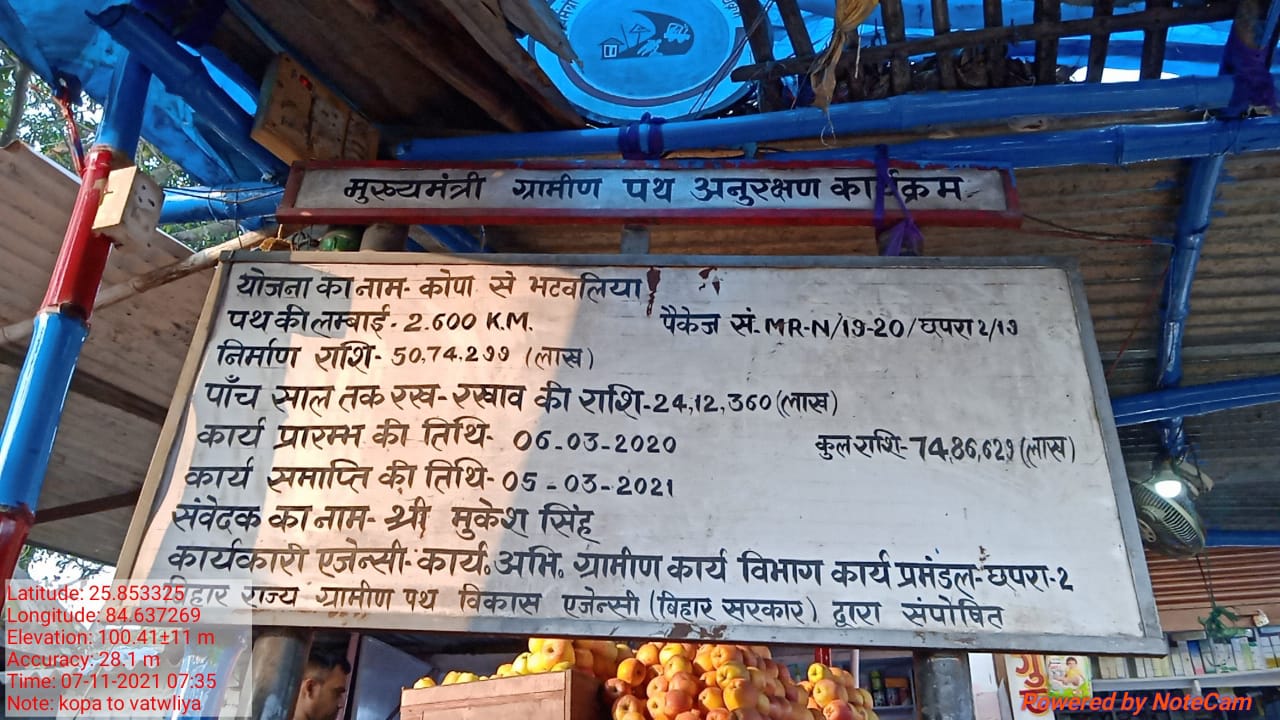 मुख्यमंत्री ग्रामीण पथ अनुरक्षण कार्यक्रम
योजना का नाम- कोपा से भटवलिया
पथ की लम्बाई- 2.600 K.M. पैकेज सं. MR-N/19-20/छपरा 2/19
निर्माण राशि- 50,74,299 (लाख)
पाँच साल तक रख-रखाव की राशि-24,12,360 (लाख)
कार्य प्रारम्भ की तिथि- 06-03-2020 कुल राशि-74,86,629 (लाख)
कार्य समाप्ति की तिथि-05-03-2021
संवेदक का नाम- श्री मुकेश सिंह
कार्यकारी एजेन्सी-कार्य. अभि. ग्रामीण कार्य विभाग कार्य प्रमंडल-छपरा-2
बिहार राज्य ग्रामीण पथ विकास एजेन्सी (बिहार सरकार) द्वारा संपोषित
Latitude: 25.853325
Longitude: 84.637269
Elevation: 100.41±11 m
Accuracy: 28.1 m
Time: 07-11-2021 07:35
Note: kopa to vatwliya
Powered by NoteCam